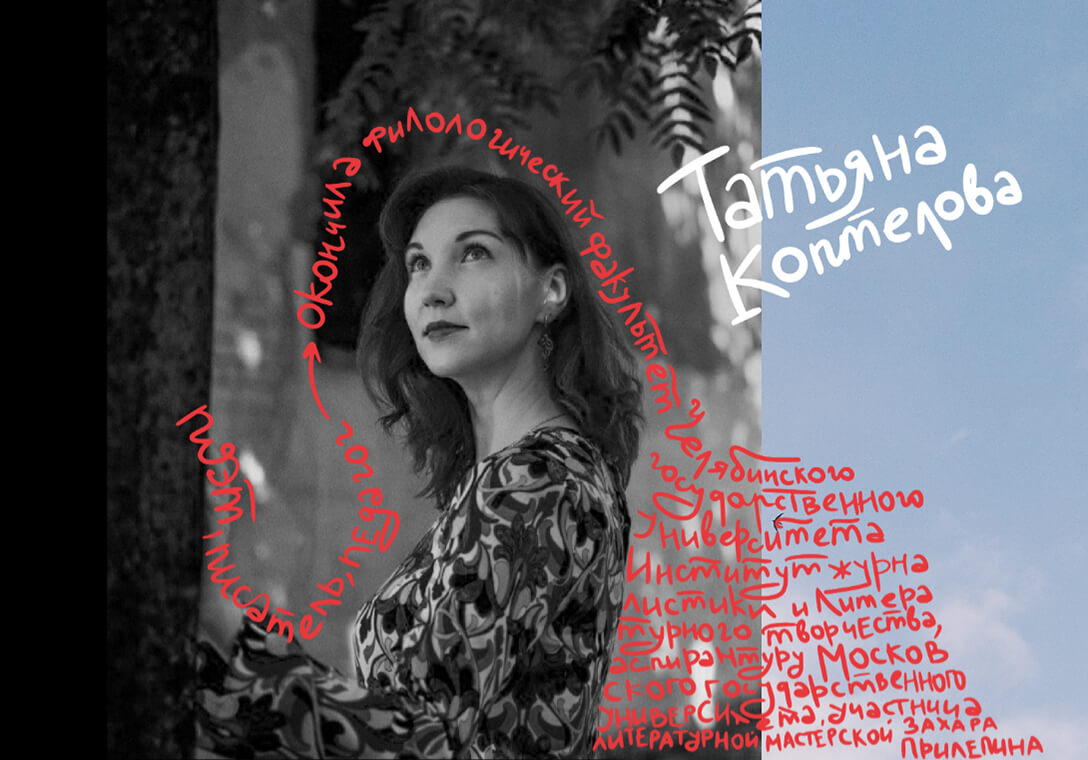 Татьяна
Коптелова
писательница, педагог → окончила филологический факультет Челябинского
государственного
Университета
Институт журна
листики и Литера
турного творчества,
аспирантуру Москов
ского государственного
университета, участница
литературной мастерской Захара
Прилепина